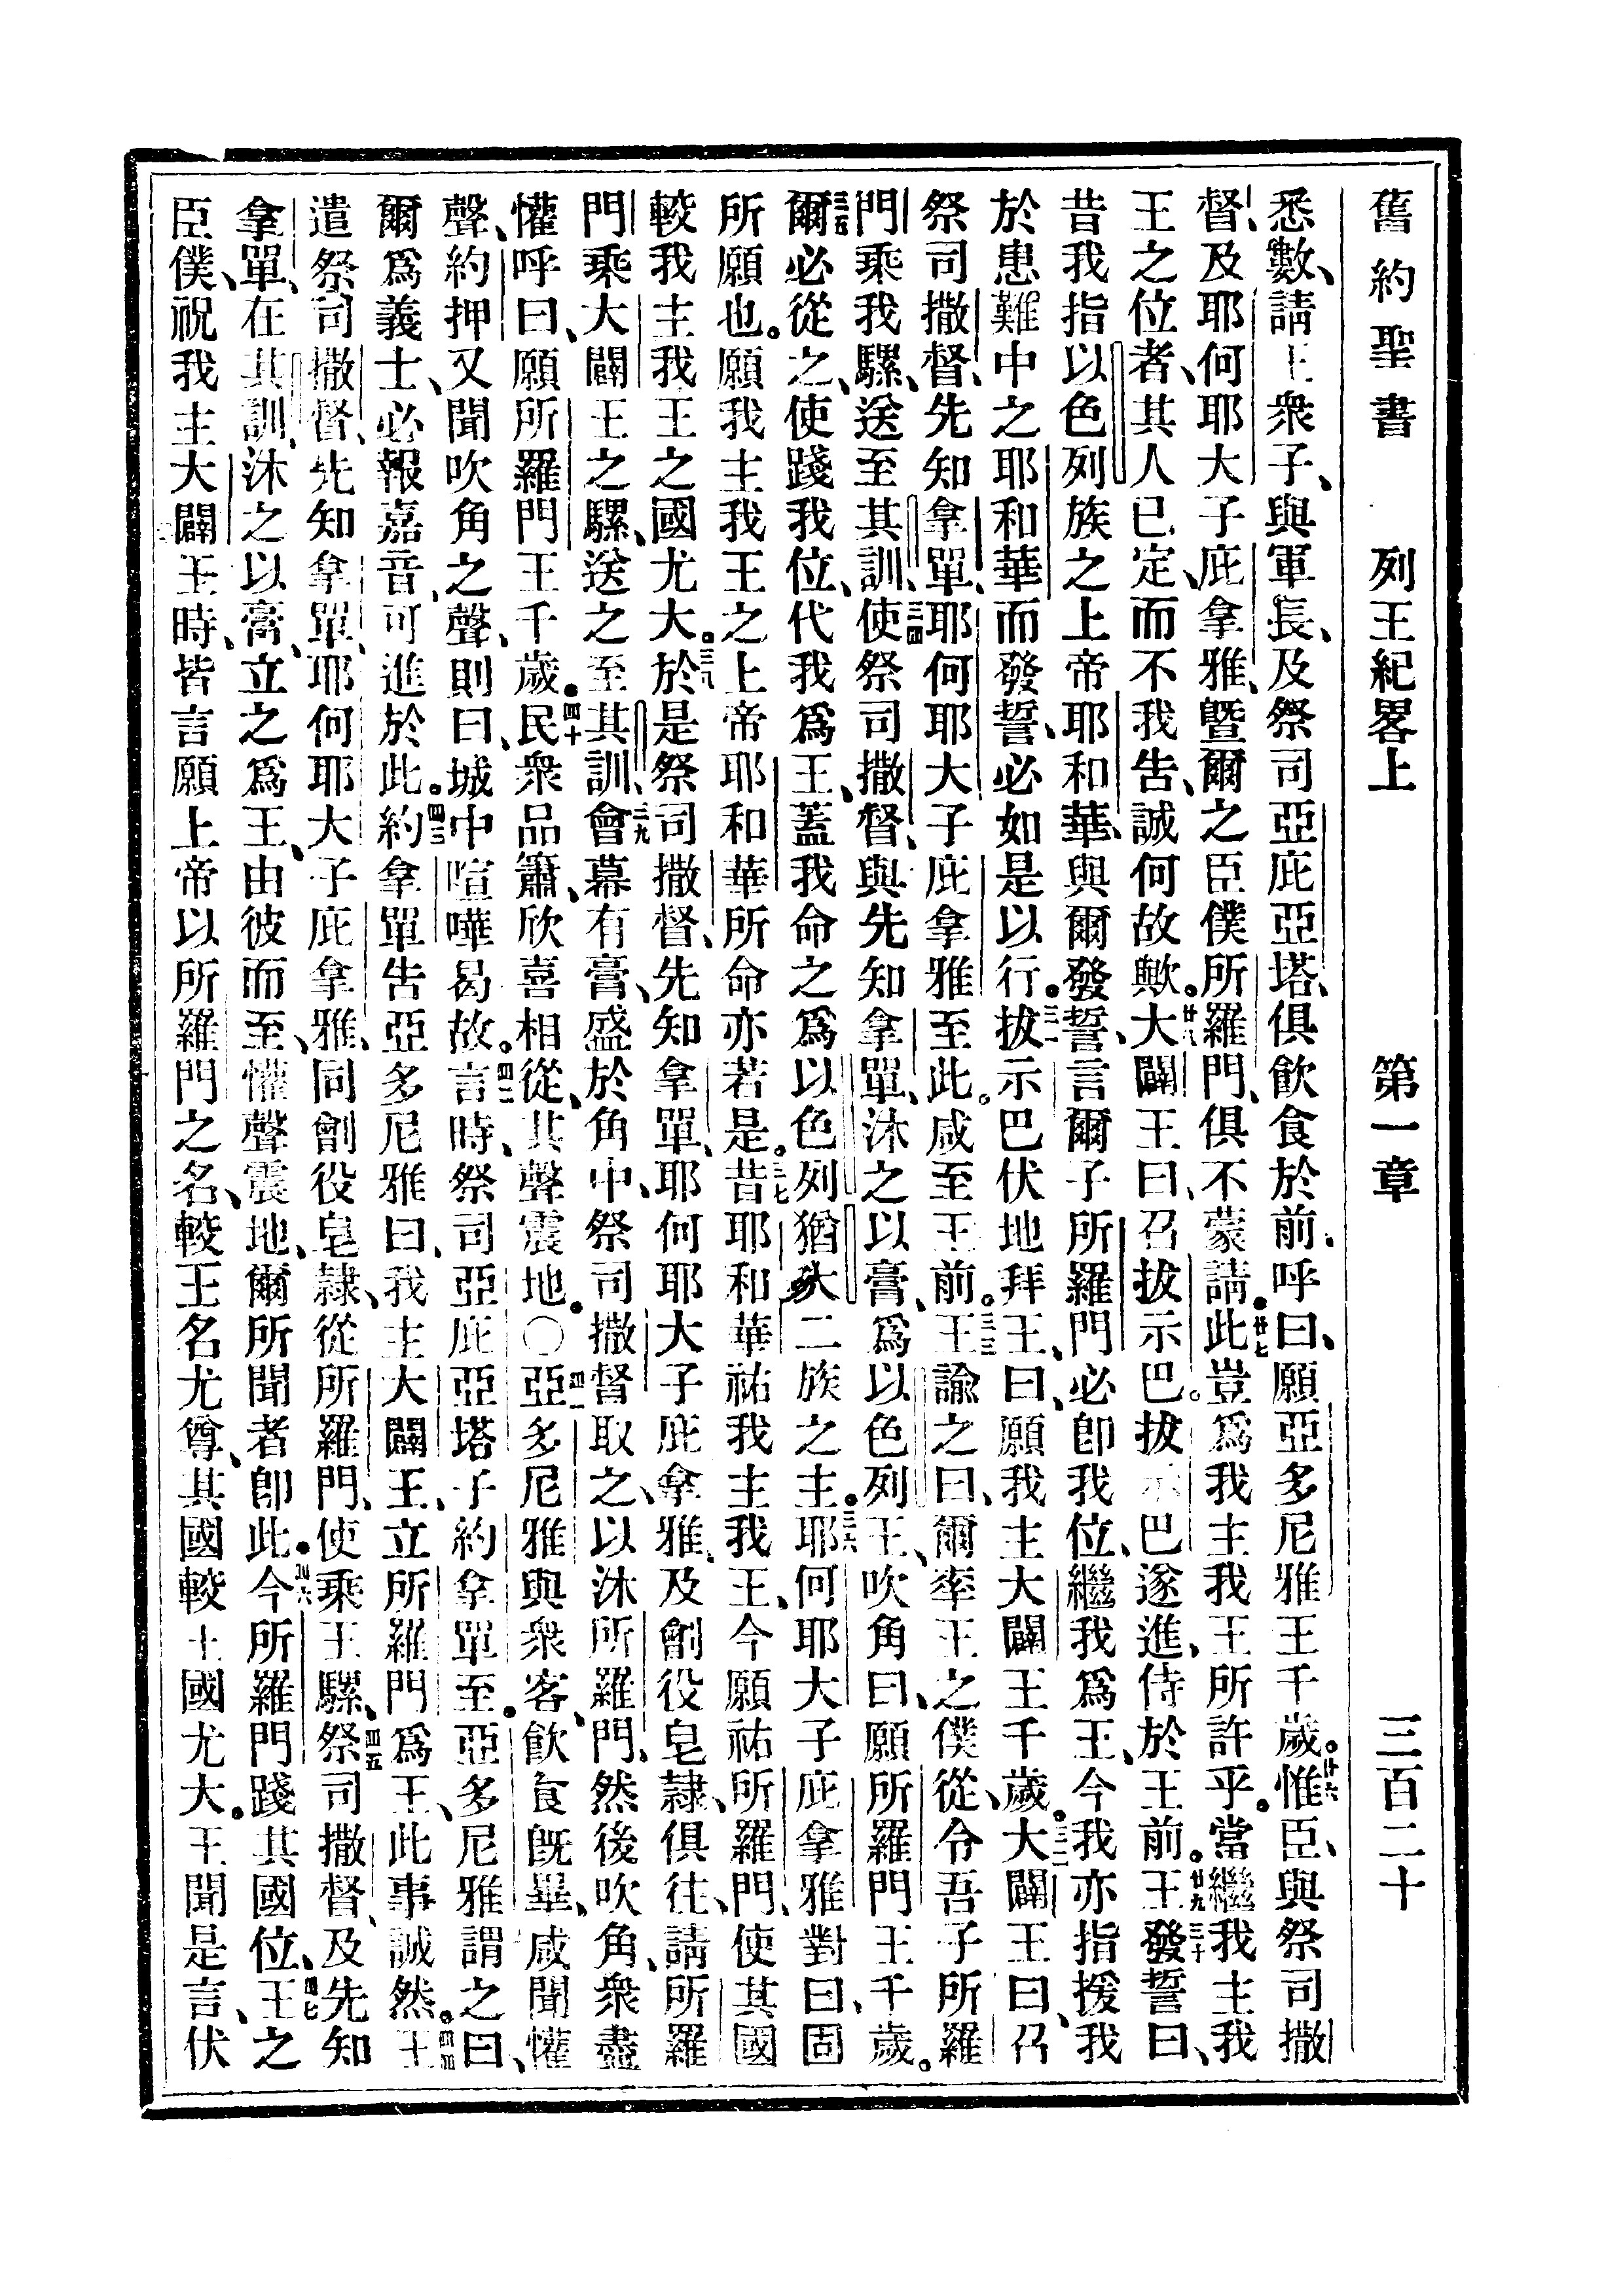 舊約聖書 列王紀畧上 第一章 三百二十
悉數、請王衆子、與軍長、及祭司亞庇亞塔、俱飮食於前、呼曰、願亞多尼雅王千歲。廿六惟臣、與祭司撒
督、及耶何耶大子庇拿雅、曁爾之臣僕所羅門、俱不蒙請。廿七此豈爲我主我王所許乎。當繼我主我
王之位者、其人已定、而不我吿、誠何故歟。廿八大闢王曰、召拔示巴。拔示巴遂進、侍於王前。廿九王發三十誓曰、
昔我指以色列族之上帝耶和華、與爾發誓、言爾子所羅門必卽我位、繼我爲王、今我亦指援我
於患難中之耶和華而發誓、必如是以行。三一拔示巴伏地拜王、曰、願我主大闢王千歲。三二大闢王曰、召
祭司撒督、先知拿單、耶何耶大子庇拿雅至此。咸至王前。三三王諭之曰、爾率王之僕從、令吾子所羅
門乘我騾、送至其訓、三四使祭司撒督、與先知拿單、沐之以膏、爲以色列王、吹角曰、願所羅門王千歲。
三五爾必從之、使踐我位、代我爲王、蓋我命之爲以色列猶大二族之主。三六耶何耶大子庇拿雅對曰、固
所願也。願我主我王之上帝耶和華所命亦若是。三七昔耶和華祐我主我王、今願祐所羅門、使其國
較我主我王之國尤大。三八於是祭司撒督、先知拿單、耶何耶大子庇拿雅、及劊役皂隸、俱往、請所羅
門乘大闢王之騾、送之至其訓、三九會幕有膏、盛於角中、祭司撒督取之、以沐所羅門、然後吹角、衆盡
懽呼曰、願所羅門王千歲。四十民衆品簫、欣喜相從、其聲震地。〇四一亞多尼雅與衆客、飮食旣畢、咸聞懽
聲、約押又聞吹角之聲、則曰、城中喧嘩曷故。四二言時、祭司亞庇亞塔子約拿單至。亞多尼雅謂之曰、
爾爲義士、必報嘉音、可進於此。四三約拿單吿亞多尼雅曰、我主大闢王、立所羅門爲王、此事誠然。四四王
遣祭司撒督、先知拿單、耶何耶大子庇拿雅、同劊役皂隸、從所羅門、使乘王騾、四五祭司撒督、及先知
拿單、在其訓、沐之以膏、立之爲王、由彼而至、懽聲震地、爾所聞者卽此。四六今所羅門踐其國位、四七王之
臣僕、祝我主大闢王時、皆言願上帝以所羅門之名、較王名尤尊、其國較王國尤大。王聞是言、伏